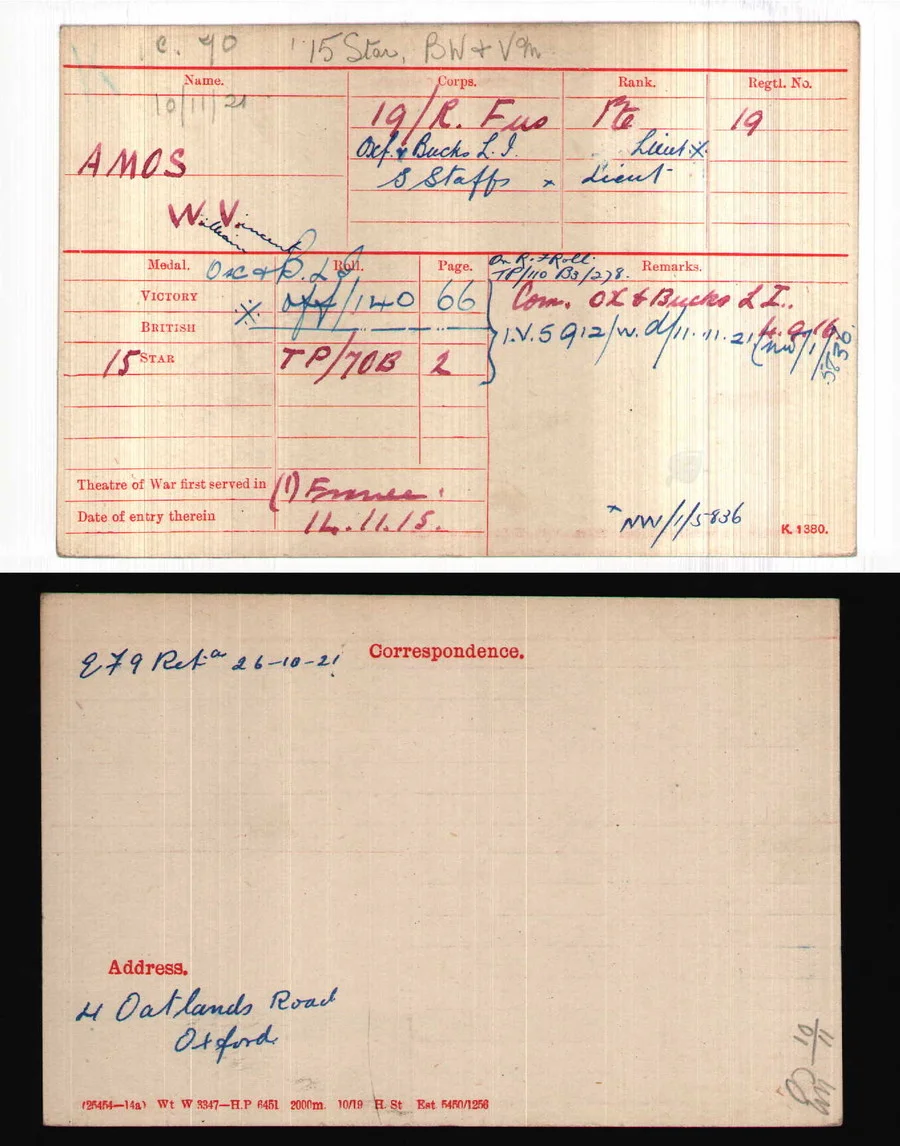 C. 40 '15 Star, BW & VM.
Name. Corps. Rank. Regtl. No.
10/11/21
19/R. Fus Pte 19
Oxf. & Bucks L.I. Lieut. X.
AMOS
S Staffs x Lieut
W. V.
William Vincent
Medal. Roll. Page. Remarks.
Ox & B. L I
On R. F Roll.
TP/110 B3/278.
VICTORY X off/140 66
Com. OX & Bucks L I..
BRITISH
I.V. 5 912/W.d/11.11.21
4.9.16
(NW/1/5836
15 STAR TP/70B 2
Theatre of War first served in (1) France.
Date of entry therein 14.11.15.
x NW/1/5836
K. 1380.
Correspondence.
EF9 Retd 26-10-21
Address.
4 Oatlands Road
Oxford.
10/11
(25454—14a) Wt W 3347—H.P 6451 2000m. 10/19 H. St Est 5450/1256